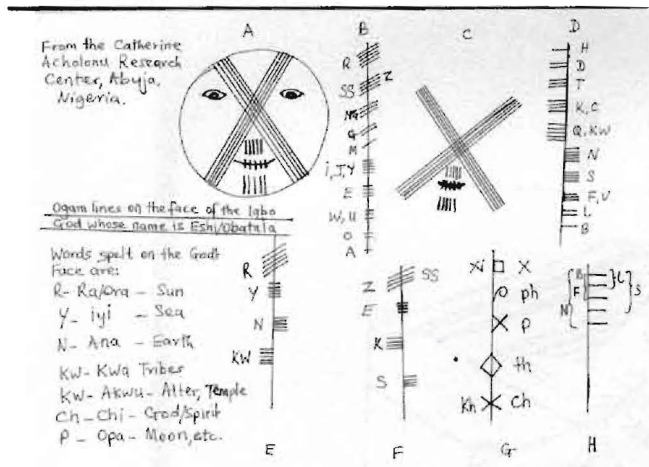 From the Catherine
Acholonu Research
Center, Abuja,
Nigeria.
A
B
C
D
R
SS Z
NG
G
M
i,J,Y
E
W,U
O
A
H
D
T
K,C
Q,KW
N
S
F,V
L
B
Ogam lines on the face of the Igbo
God whose name is Eshi/Obatala
Words spelt on the Gods
Face are:
R- Ra/Ora - Sun
Y- iyi - Sea
N- Ana - Earth
KW- Kwa Tribes
KW- Akwu- Alter, Temple
Ch- Chi- God/Spirit
P - Opa- Moon, etc.
R
Y
N
KW
E
Z SS
E
K
S
F
xi X
ph
P
th
Kh Ch
G
B
F L S
N
H